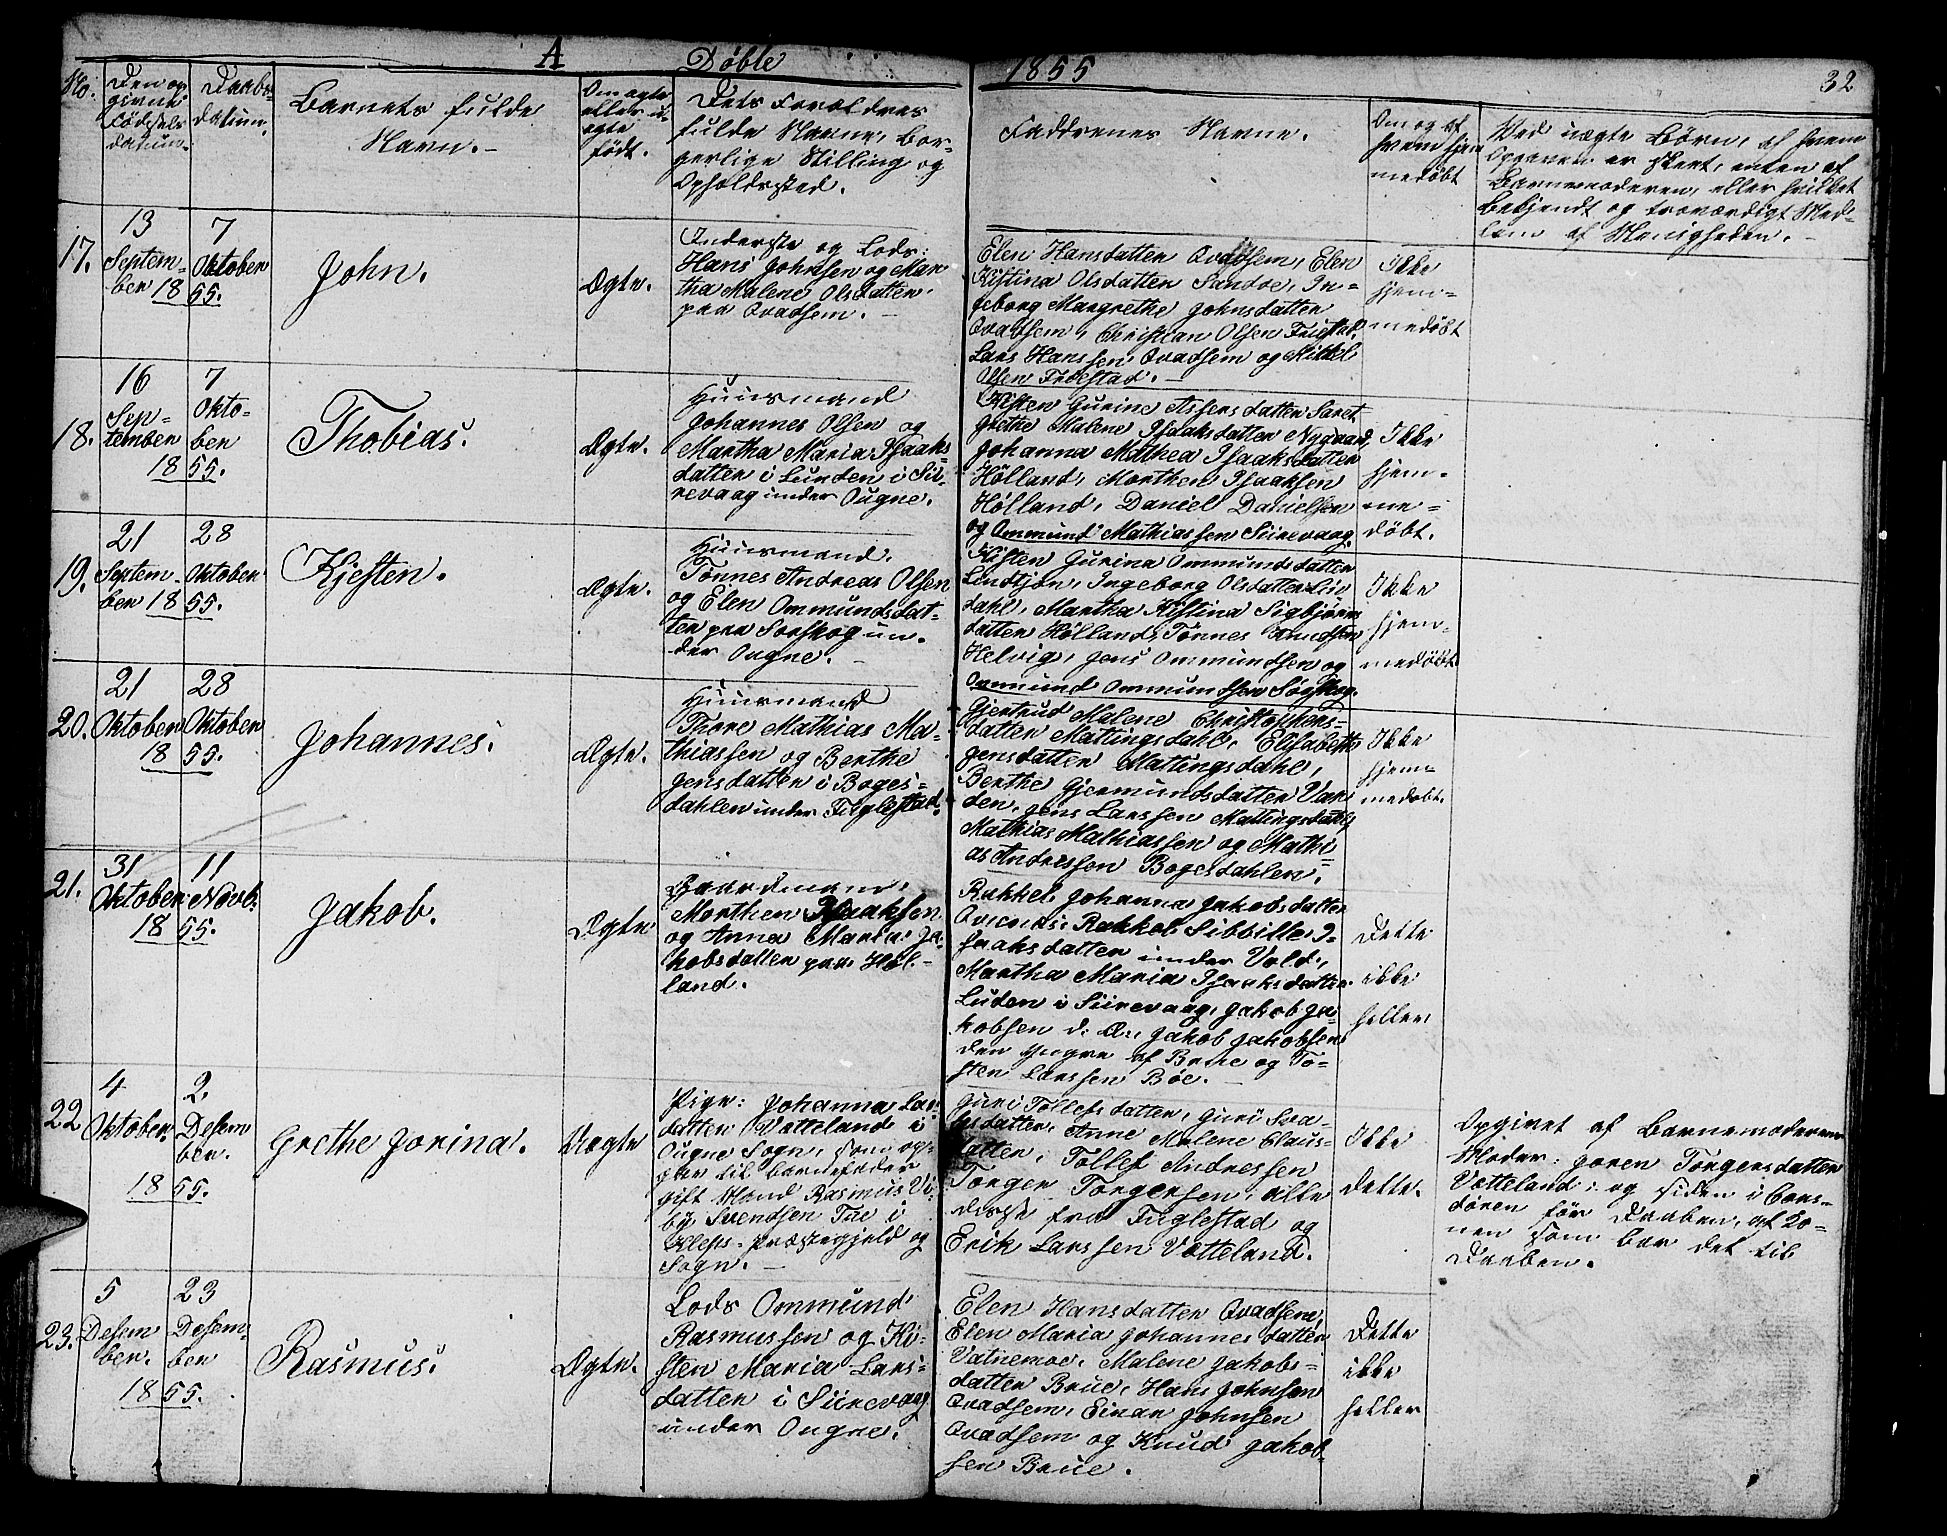 A Døbte 1855 32
No.
Den op
givne
Fødsels
datum.
Daabs-
datum.
Barnets fulde
Navn.-
Om ægte
eller u-
ægte
født.
Dets Forældres
fulde Navne, bor-
gerlige Stilling og
Opholdssted.
Faddrenes Navne.
Om og af
hvem hjem
medøbt
Ved uægte Børn, af hvem
Opgaven er skeet, enten af
Barnemoderen, eller hvilket
bekjendt og troværdigt Med-
lem af Menigheden.-
17.
13
Septem-
ber 18
7
Oktober
55.
John.
Ægte.
Inderste og Lods:
Hans Johnsen og Mar
tha Malene Olsdatter.
paa Qvadsem.-
Elen Hansdatter Qvadsem, Elen
Kistina Olsdatter Sandve, In-
geborg Margrethe Johnsdatter
Qvadsem, Christian Olsen
Lars Hanssen Qvadsem og Mikkel
Olsen
Ikke
hjem-
medøbt
18.
16
Sep-
tember
18
7
Okto-
ber
55.
Thobias.
Ægte.
Huusmand
Johannes Olsen og
Martha Maria Isaaks-
datter i Lunden i Sii-
revaag under Ougne.
Kisten Gurine datter
Grethe Malene Isaaksdatter Nygaard,
Johanna Mathea Isaaksdatter
Hølland, Morthen Isaaksen
Hølland, Daniel Danielsen
og Ommund Mathiassen Siirevaag.
Ikke
hjem-
me-
døbt.
19.
21
Septem-
ber 18
28
Oktober
55.
Kjesten.
Ægte.
Huusmand.
Tønnes Andreas Olsen
og Elen Ommundsdat-
ter paa un-
der Ougne.-
Kisten Gurina Ommundsdatter
Lindtjørn, Ingeborg Olsdatter
dahl, Martha Kistina Sigbjørns
datter Hølland, Tønnes Knudsen
Helvig, Jens Ommundsen og
Ommund Ommundsen
Ikke
hjem-
medøbt
20.
21
Oktober
18
28
Oktober
55.
Johannes.
Ægte.
Huusmand
Thore Mathias Ma-
thiassen og Berthe
Jensdatter i Boges-
dahlen under Fuglestad.
Gjertrud Malene Christophers-
datter Mattingsdahl, Elisabeth
Jensdatter Mattingsdahl,
Berthe Gjermundsdatter Var
den, Jens Larssen Mattingsdahl
Mathias Mathiassen og Mathi-
as Andressen Bogesdahlen.
Ikke
hjem-
medøbt.
21.
31
Oktober
18
11
Novb.
55.
Jakob.
Ægte
Gaardmand.
Morthen Isaaksen
og Anna Maria Ja-
kobsdatter paa Høl-
land.
Rakkel Johanna Jakobsdatter
Rakkel Sibbille I-
saaksdatter under Vold,
Martha Maria Isaaksdatter
Luden i Siirevaag, Jakob Ja-
kobsen d: Æ:, Jakob Jakobsen
den yngre af Brue og To-
sten Larssen Bøe.-
Dette
ikke
heller
22
4
Oktober
18
2
Desem
ber.
55.
Grethe Jorina.
Uægte
Pige: Johanna Lars
datter Vetteland i
Ougne Sogn, som op-
gav til barnefader
gift Mand Rasmus Vi-
by Svendsen Tue i
Kleps Præstegjeld og
Sogn.-
Guri Tollefsdatter, Guri Sva-
datter, Anne Malene Claus-
datter, Tollef Andressen
Torger Torgersen, alle
disse fra Fuglestad og
Erik Larssen Vetteland.
Ikke
dette.
Opgivet af Barnemoderens
Moder: Joren Torgersdatter
Vetteland; og siden i Vaa-
døren før Daaben, af Ko-
nen som bar det til
Daaben.
23.
5
Desem
ber.
18
23
Desem-
ber
55.
Rasmus.
Ægte.
Lods Ommund
Rasmussen og Ki-
sten Maria Lars-
datter i Siirevaag
under Ougne.
Elen Hansdatter Qvadsem,
Elen Maria Johannesdatter
Vatnemoe, Malene Jakobs-
datter Brue, Hans Johnsen
Qvadsem, Einar Johnsen
Qvadsem og Knud Jakob-
sen Brue.
Dette
ikke
heller